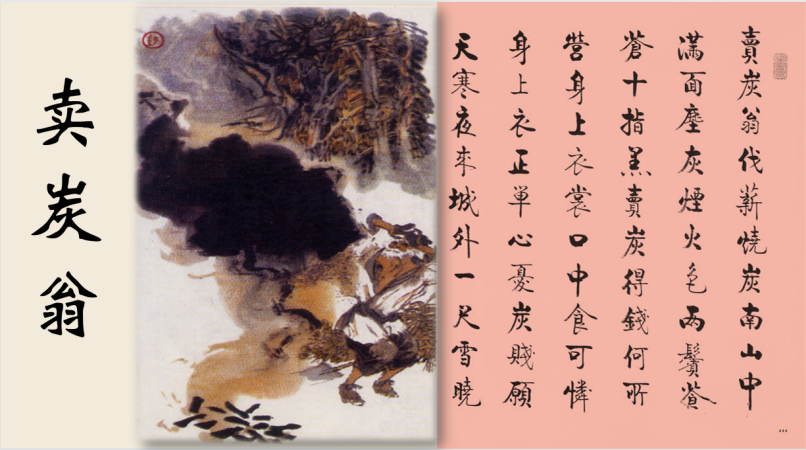 卖炭翁
賣炭翁伐薪燒炭南山中
滿面塵灰煙火色两鬢蒼
蒼十指黑賣炭得錢何所
營身上衣裳口中食可憐
身上衣正単心憂炭賤願
天寒夜來城外一尺雪曉